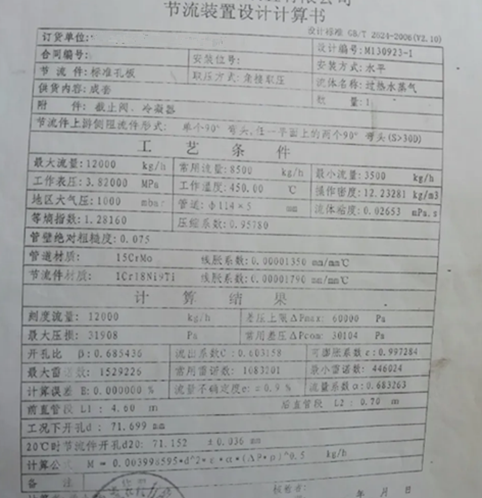 有限公司
节流装置设计计算书
设计标准 GB/T 2624-2006(V2.10)
订货单位: 设计编号:M130923-1
合同编号: 安装位号: 安装方式:水平
节 流 件:标准孔板 取压方式: 流体名称:过热水蒸气
供货内容:成套 数 量:1
附 件: 截止阀、冷凝器
节流件上游侧阻流件形式: 单个90°弯头,任一平面上的两个90°弯头(S>30D)
工 艺 条 件
最大流量:12000 kg/h 常用流量:8500 kg/h 最小流量:3500 kg/h
工作表压:3.82000 MPa 工作温度:450.00 ℃ 操作密度:12.23281 kg/m3
地区大气压:1000 mbar 管道:Φ114×5 mm 流体粘度:0.02653 mPa.s
等熵指数:1.28160 压缩系数:0.95780
管壁绝对粗糙度:0.075
管道材质: 15CrMo 线胀系数:0.00001350 mm/mm℃
节流件材质: 1Cr18Ni9Ti 线胀系数:0.00001790 mm/mm℃
计 算 结 果
刻度流量:12000 kg/h 差压上限ΔPmax: 60000 Pa
最大压损:31908 Pa 常用差压ΔPcom: 30104 Pa
开孔比 β:0.685436 流出系数C:0.603158 可膨胀系数ε:0.997284
最大雷诺数: 1529226 常用雷诺数: 1083201 最小雷诺数: 446024
计算误差 E:0.000000 % 流量不确定度 = 0.9 % 流量系数α:0.683263
前直管段 L1: 4.60 m 后直管段 L2: 0.70 m
工况下开孔d: 71.699 mm
20℃时节流件开孔d20: 71.152 ±0.036 mm
计算公式 M = 0.003998595*d^2*ε*α*(ΔP*ρ)^0.5 kg/h
备 注
年 月 日